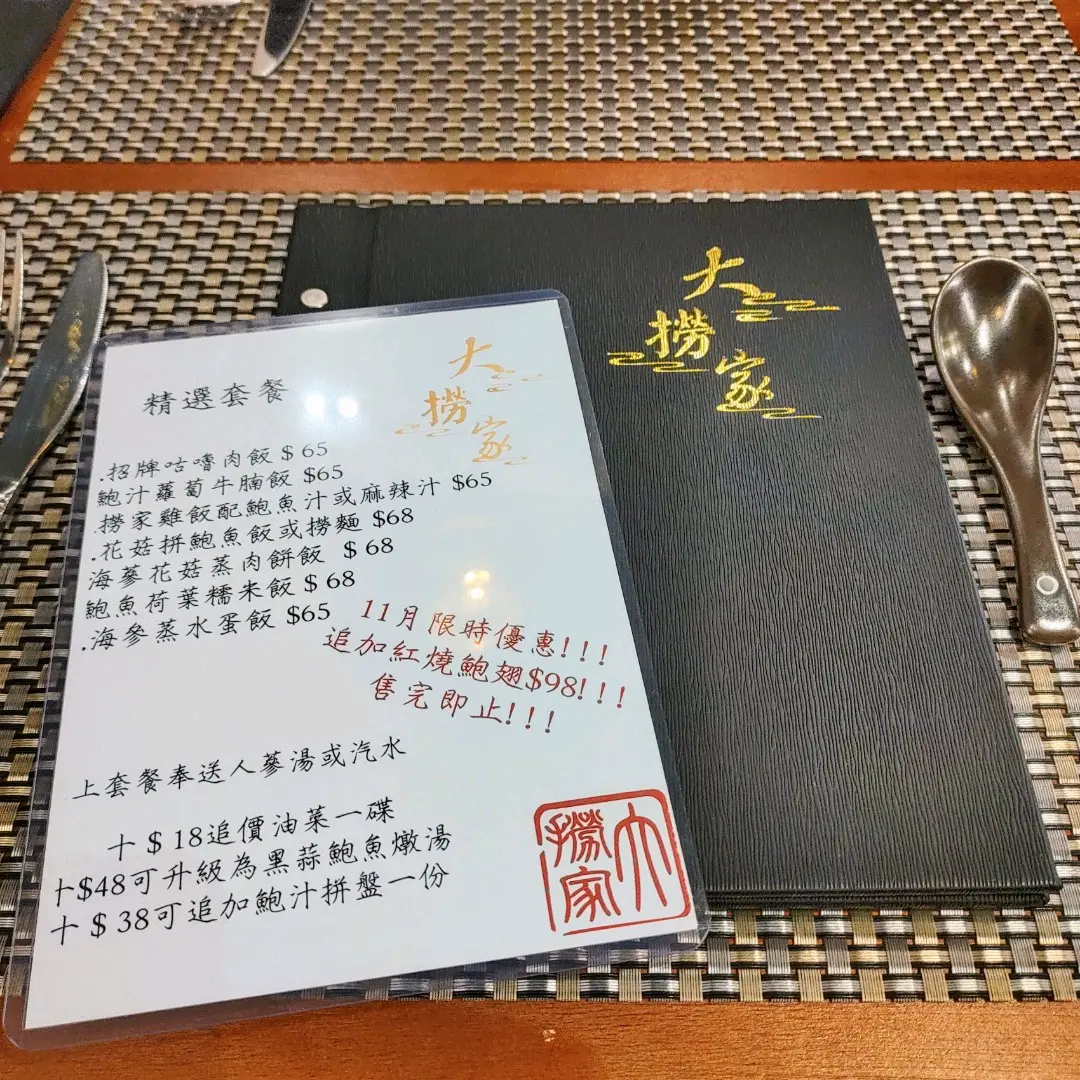 大
撈
家
大
撈
家
精選套餐
.招牌咕嚕肉飯 $ 65
鮑汁蘿蔔牛腩飯 $65
.撈家雞飯配鮑魚汁或麻辣汁 $65
.花菇拼鮑魚飯或撈麵 $68
海蔘花菇蒸肉餅飯 $ 68
鮑魚荷葉糯米飯 $ 68
.海參蒸水蛋飯 $65
11月限時優惠!!!
追加紅燒鮑翅$98!!!
售完即止!!!
上套餐奉送人蔘湯或汽水
十 $ 18追價油菜一碟
十$48可升級為黑蒜鮑魚燉湯
十 $ 38可追加鮑汁拼盤一份
大
撈家